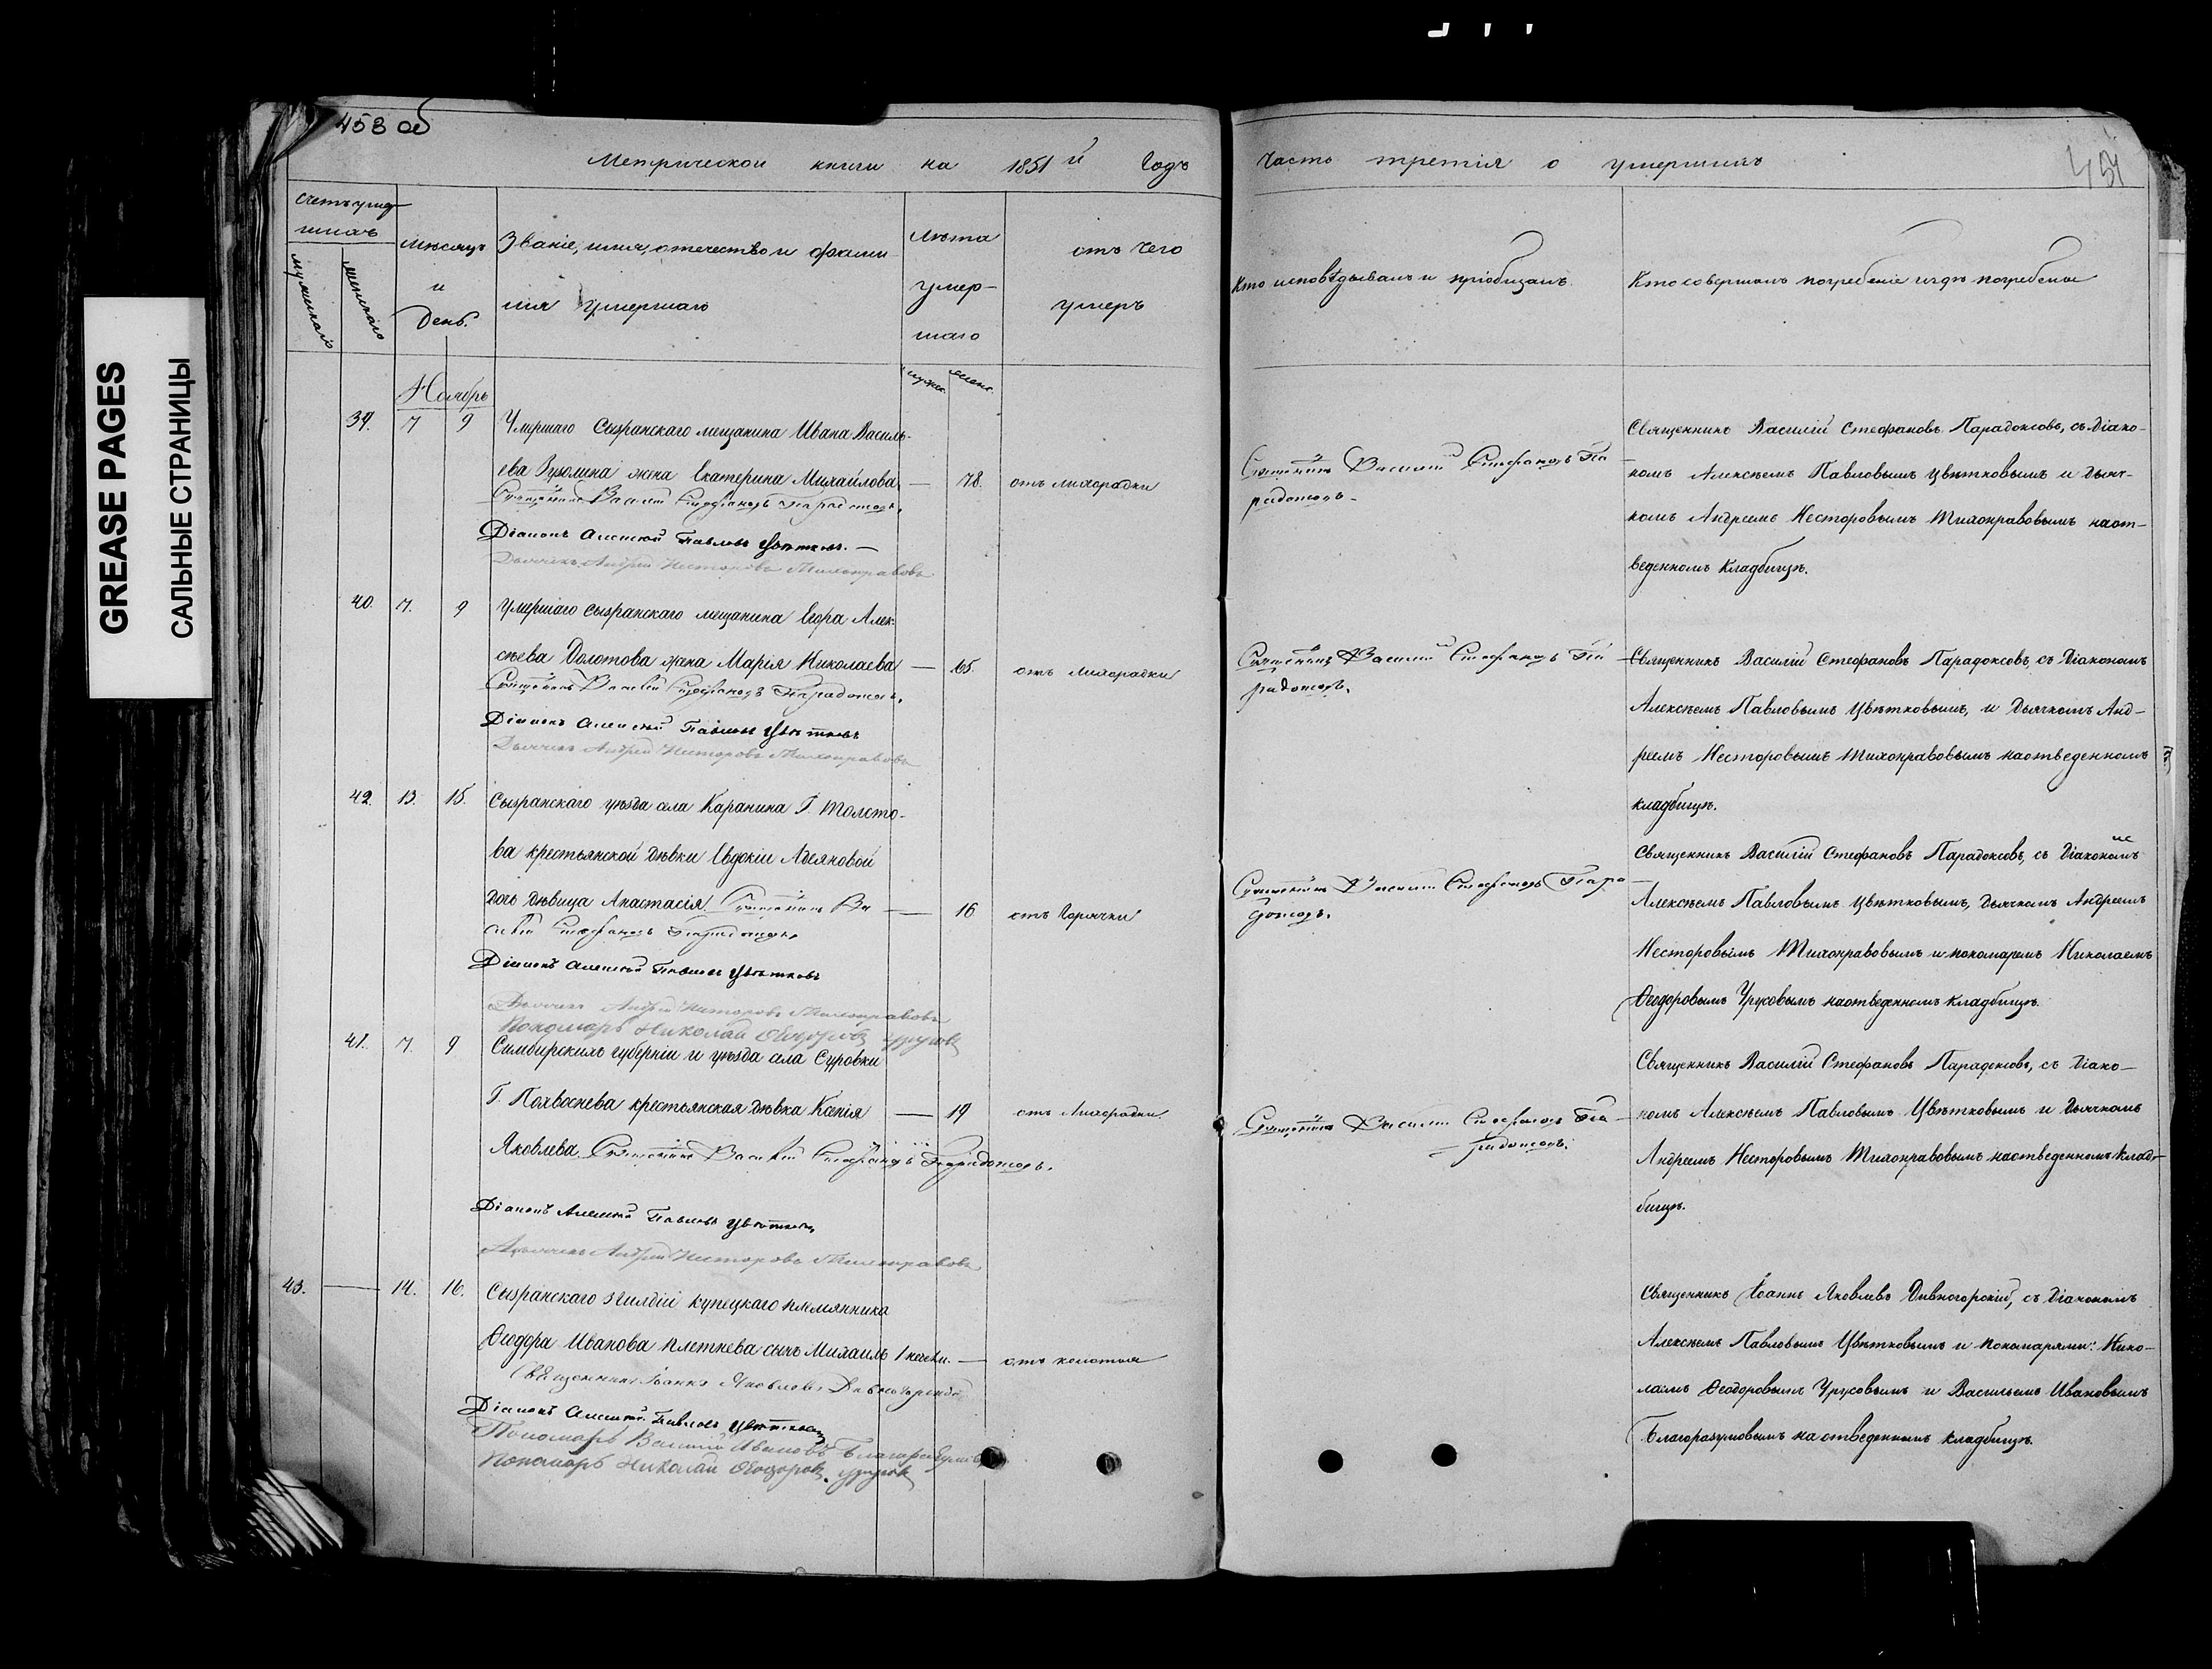 GREASE PAGES
САЛЬНЫЕ СТРАНИЦЫ
453 об
Метрической книги на 1851 й Годъ
Часть третія о умершихъ
454
Счетъ умер-
шихъ
мужескаго
женскаго
мѣсяцъ
и
день.
Званіе, имя, отечество и фами-
лія умершаго
Лѣта
умер-
шаго
муж.
женс.
отъ чего
умеръ
Кто исповѣдывалъ и пріобщалъ.
Кто совершалъ погребеніе и гдѣ погребены
Ноябрь
39. 7 9 Умершаго Сызранскаго мещанина Ивана Василь-
ева жена Екатерина Михайлова — 78. отъ лихорадки
Священникъ Василій Стефановъ Парадоксовъ.
Діаконъ Алексѣй Павловъ Цвѣтковъ. —
Дьячекъ Андрей Несторовъ Тихонравовъ
Священникъ Василій Стефановъ Па-
радоксовъ.
Священникъ Василій Стефановъ Парадоксовъ, съ Діако-
номъ Алексѣемъ Павловымъ Цвѣтковымъ и дьяч-
комъ Андреемъ Несторовымъ Тихонравовымъ наот-
веденномъ кладбищѣ.
40. 7. 9 Умершаго Сызранскаго мещанина Егора Алек-
сѣева Долотова жена Марія Николаева — 65. отъ лихорадки
Священникъ Василій Стефановъ Парадоксовъ.
Діаконъ Алексѣй Павловъ Цвѣтковъ
Дьячекъ Андрей Несторовъ Тихонравовъ
Священникъ Василій Стефановъ Па-
радоксовъ.
Священникъ Василій Стефановъ Парадоксовъ, съ Діакономъ
Алексѣемъ Павловымъ Цвѣтковымъ, и дьячкомъ Анд-
реемъ Несторовымъ Тихонравовымъ наотведенномъ
кладбищѣ.
42. 13. 15. Сызранскаго уѣзда села Каранина Г. Толсто-
ва крестьянской дѣвки Евдокіи Адеяновой
дочь дѣвица Анастасія Священникъ Ва- — 16 отъ Горячки
силій Стефановъ Парадоксовъ.
Діаконъ Алексѣй Павловъ Цвѣтковъ
Дьячекъ Андрей Несторовъ Тихонравовъ
Пономарь Николай Ѳеодоровъ Урусовъ
Священникъ Василій Стефановъ Пара-
доксовъ.
Священникъ Василій Стефановъ Парадоксовъ, съ Діакономъ
Алексѣемъ Павловымъ Цвѣтковымъ, дьячкомъ Андреемъ
Несторовымъ Тихонравовымъ и пономаремъ Николаемъ
Ѳеодоровымъ Урусовымъ наотведенномъ кладбищѣ.
41. 7. 9 Симбирскихъ губерніи и уѣзда села Суровки
Г. Похвоснева крестьянская дѣвка Ксенія — 19 отъ Лихорадки.
Яковлева Священникъ Василій Стефановъ Парадоксовъ.
Діаконъ Алексѣй Павловъ Цвѣтковъ
Дьячекъ Андрей Несторовъ Тихонравовъ
Священникъ Василій Стефановъ Па-
радоксовъ.
Священникъ Василій Стефановъ Парадоксовъ, съ Діако-
номъ Алексѣемъ Павловымъ Цвѣтковымъ и дьячкомъ
Андреемъ Несторовымъ Тихонравовымъ наотведенномъ клад-
бищѣ.
43. — 14. 16. Сызранскаго 3 Гилдіи купецкаго племянника
Ѳеодора Иванова Плетнева сынъ Михаилъ 1 недели. — отъ колотья
Священникъ Іоаннъ Яковлевъ Дивногорскій
Діаконъ Алексѣй Павловъ Цвѣтковъ
Пономарь Василій Ивановъ Благоразумовъ
Пономарь Николай Ѳеодоровъ Урусовъ
Священникъ Іоаннъ Яковлевъ Дивногорскій, съ Діакономъ
Алексѣемъ Павловымъ Цвѣтковымъ и пономарями: Нико-
лаемъ Ѳеодоровымъ Урусовымъ и Васильемъ Ивановымъ
Благоразумовымъ на отведенномъ кладбищѣ.